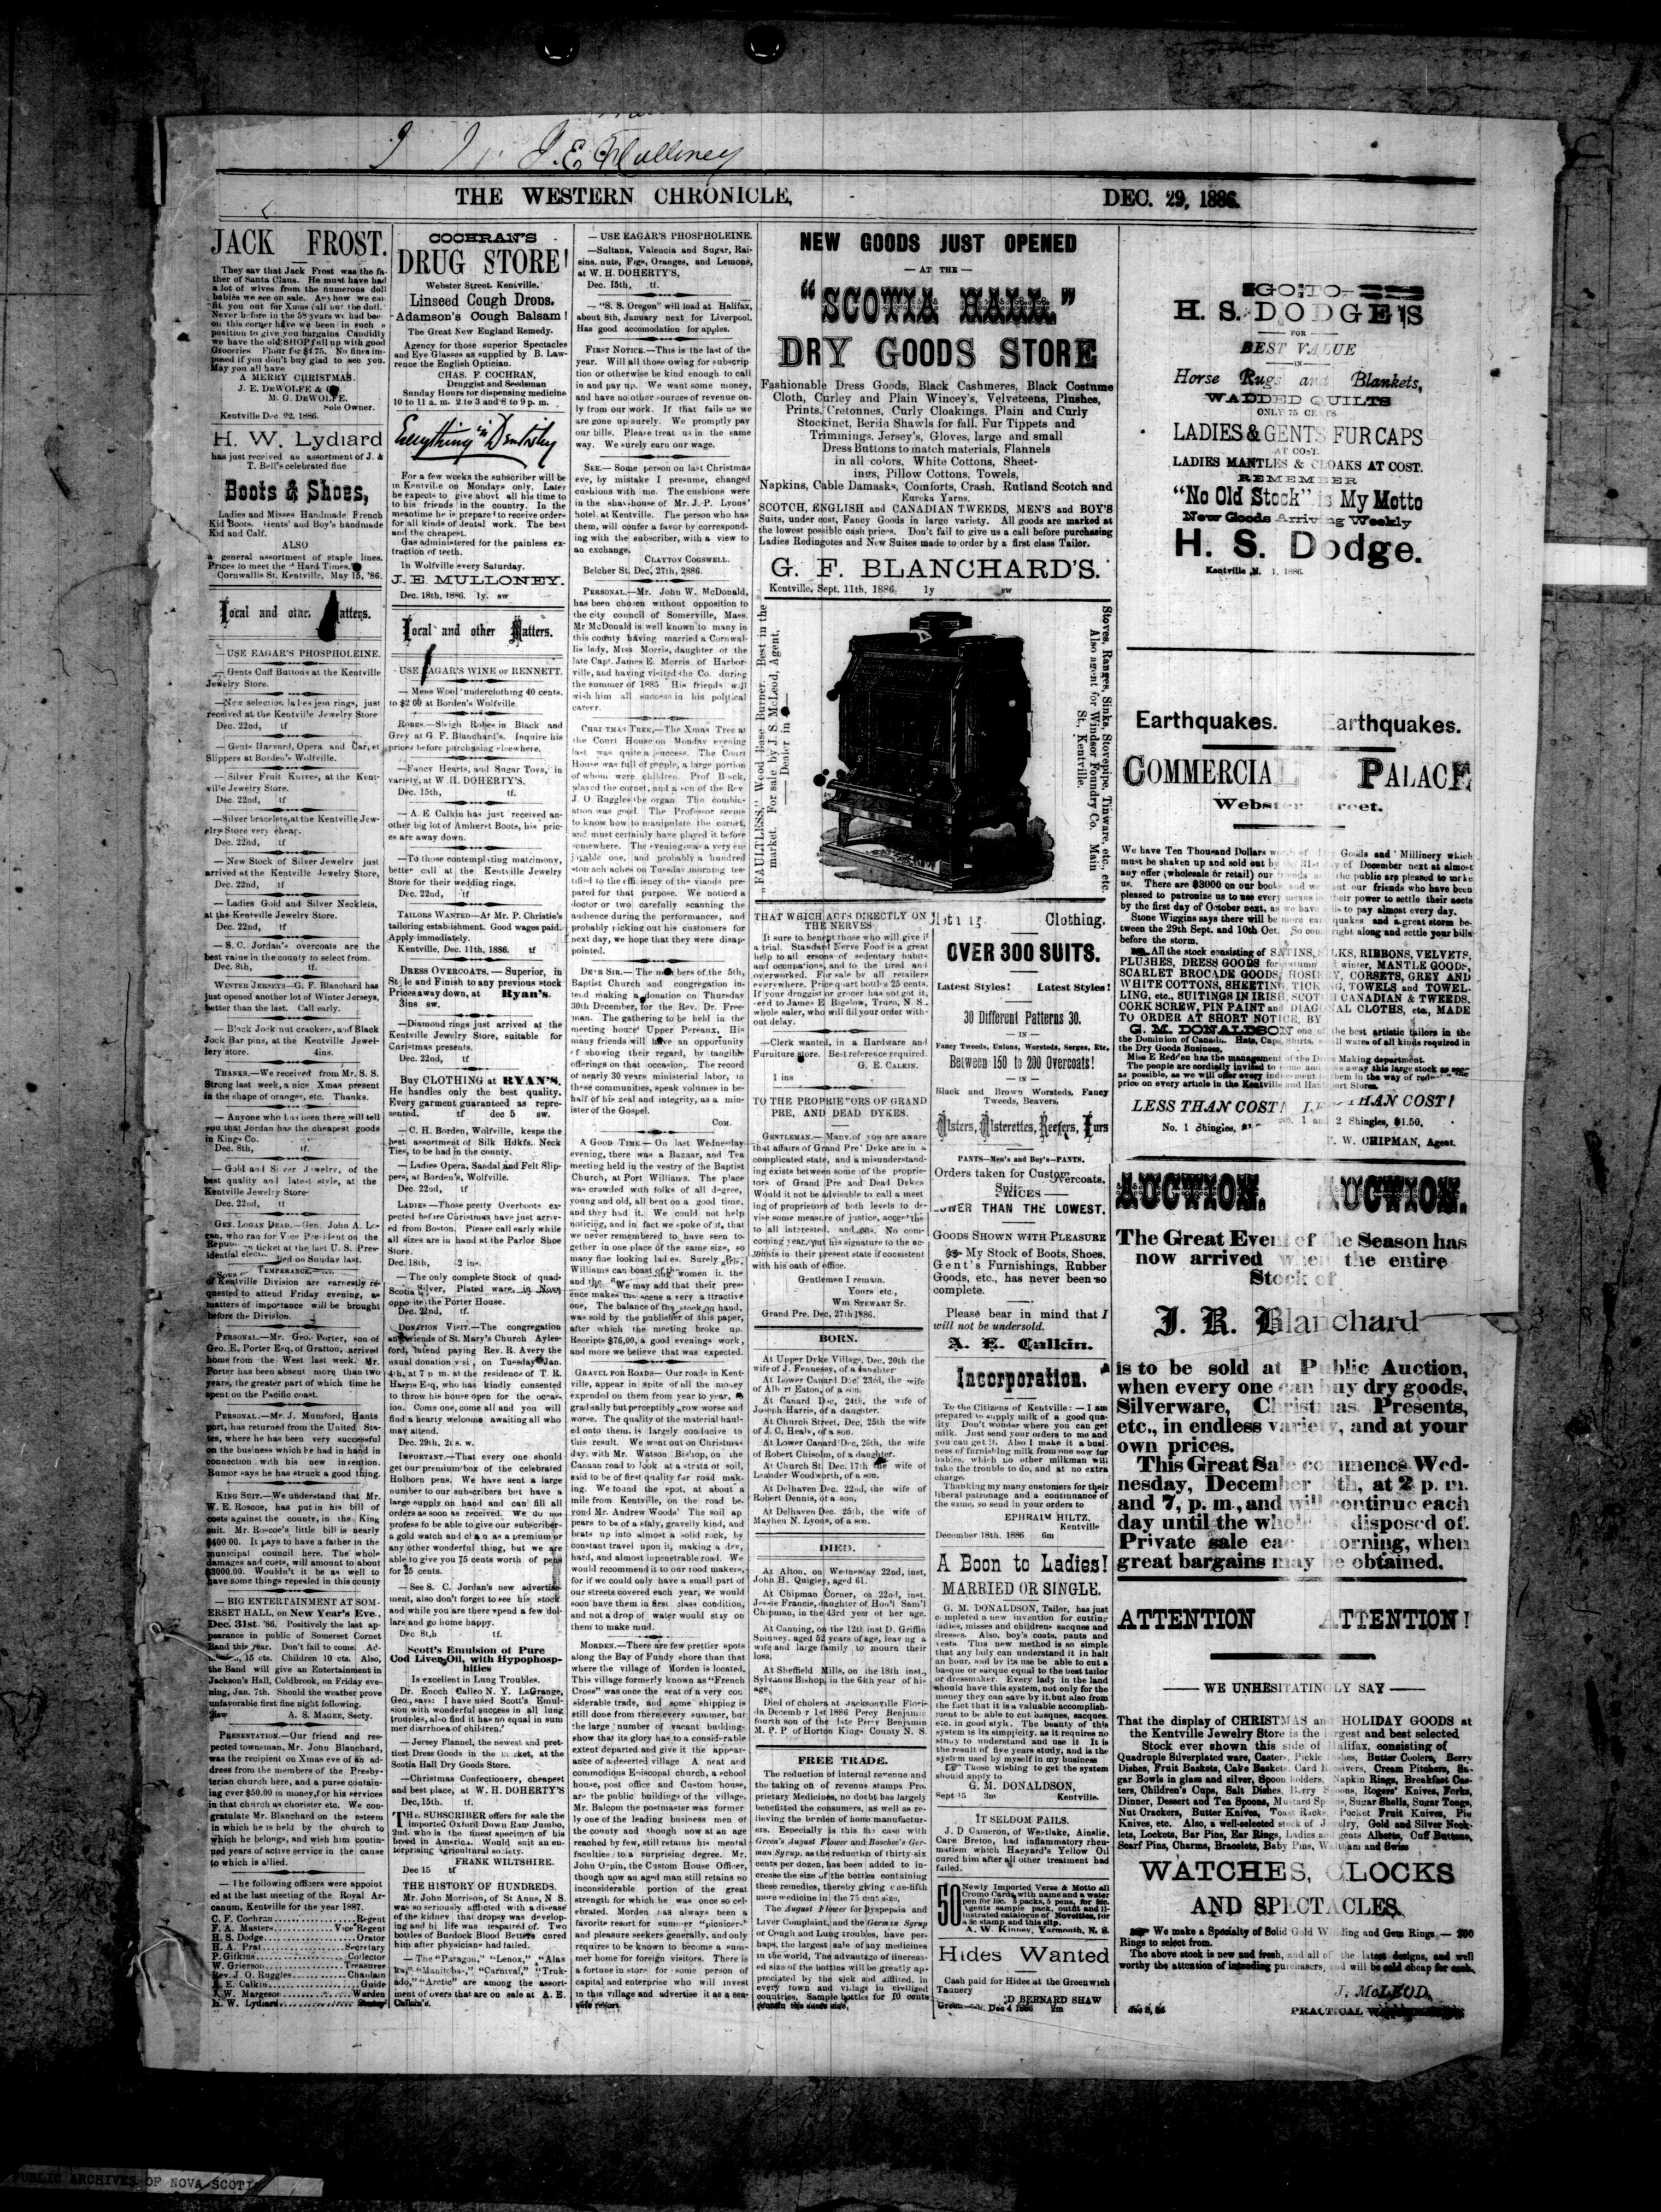 J. E. Mulloney
THE WESTERN CHRONICLE,
DEC. 29, 1886.
JACK FROST.
They say that Jack Frost was the fa-
ther of Santa Claus. He must have had
a lot of wives from the numerous doll
babies we see on sale. Anyhow we can
fit you out for Xmas all but the doll.
Never before in the 58 years we had been
on this corner have we been in such a
position to give you bargains Candidly
we have the old SHOP full up with good
Groceries Flour for $4.75. No fines im-
posed if you don't buy glad to see you.
May you all have
A MERRY CHRISTMAS.
J. E. DEWOLFE &
M. G. DEWOLFE.
Sole Owner.
Kentville Dec 22, 1886.
H. W. Lydiard
has just received an assortment of J. &
T. Bell's celebrated fine
Boots & Shoes,
Ladies and Misses Handmade French
Kid Boots. Gents' and Boy's handmade
Kid and Calf.
ALSO
a general assortment of staple lines.
Prices to meet the "Hard Times."
Cornwallis St. Kentville, May 15, '86.
Local and other Matters.
—USE EAGAR'S PHOSPHOLEINE.
—Gents Cuff Buttons at the Kentville
Jewelry Store.
—New selection ladies jem rings, just
received at the Kentville Jewelry Store
Dec. 22nd, tf
—Gents Harvard, Opera and Carpet
Slippers at Borden's Wolfville.
—Silver Fruit Knives, at the Kent-
ville Jewelry Store.
Dec. 22nd, tf
—Silver bracelets, at the Kentville Jew-
elry Store very cheap.
Dec. 22nd, tf
—New Stock of Silver Jewelry just
arrived at the Kentville Jewelry Store,
Dec. 22nd, tf
—Ladies Gold and Silver Necklets,
at the Kentville Jewelry Store.
Dec. 22nd, tf
—S. C. Jordan's overcoats are the
best value in the county to select from.
Dec. 8th, tf.
WINTER JERSEYS—G. F. Blanchard has
just opened another lot of Winter Jerseys,
better than the last. Call early.
—Black Jock nut crackers, and Black
Jock Bar pins, at the Kentville Jewel-
lery store. 4ins.
THANKS.—We received from Mr. S. S.
Strong last week, a nice Xmas present
in the shape of oranges, etc. Thanks.
—Anyone who has been there will tell
you that Jordan has the cheapest goods
in Kings Co.
Dec. 8th, tf.
—Gold and Silver Jewelry, of the
best quality and latest style, at the
Kentville Jewelry Store
Dec. 22nd, tf
GEN. LOGAN DEAD.—Gen. John A. Lo-
gan, who ran for Vice President on the
ticket at the last U. S. Pres-
idential died on Sunday last.
SONS TEMPERANCE.
of Kentville Division are earnestly re-
quested to attend Friday evening, as
matters of importance will be brought
before the Division.
PERSONAL.—Mr. Geo. Porter, son of
Geo. E. Porter Esq, of Grafton, arrived
home from the West last week. Mr.
Porter has been absent more than two
years, the greater part of which time he
spent on the Pacific coast.
PERSONAL.—Mr. J. Mumford, Hants
port, has returned from the United Sta-
tes, where he has been very successful
on the business which he had in hand in
connection with his new invention.
Rumor says he has struck a good thing.
KING SUIT.—We understand that Mr.
W. E. Roscoe, has put in his bill of
costs against the county, in the King
suit. Mr. Roscoe's little bill is nearly
$400 00. It pays to have a father in the
municipal council here. The whole
damages and costs, will amount to about
$3000.00. Wouldn't it be as well to
have some things repealed in this county
—BIG ENTERTAINMENT AT SOM-
ERSET HALL, on New Year's Eve.,
Dec. 31st. '86. Positively the last ap-
pearance in public of Somerset Cornet
Band this year. Don't fail to come. Ad-
15 cts. Children 10 cts. Also,
the Band will give an Entertainment in
Jackson's Hall, Coldbrook, on Friday eve-
ning, Jan. 7th. Should the weather prove
unfavorable first fine night following.
A. S. MAGEE, Secty.
PRESENTATION.—Our friend and res-
pected townsman, Mr. John Blanchard,
was the recipient on Xmas eve of an ad-
dress from the members of the Presby-
terian church here, and a purse contain-
ing over $50.00 in money, for his services
in that church as chorister etc. We con-
gratulate Mr. Blanchard on the esteem
in which he is held by the church to
which he belongs, and wish him contin-
ued years of active service in the cause
to which is allied.
—The following officers were appoint
ed at the last meeting of the Royal Ar-
canum, Kentville for the year 1887.
C. F. Cochran..............Regent
F. A. Masters..............Vice Regent
H. S. Dodge................Orator
H. A. Prat.................Secretary
P. Gifkins.................Collector
W. Grierson................Treasurer
Rev. J. O. Ruggles.........Chaplain
E. Calkin..................Guide
W. Margeson................Warden
W. Lydiard.................Sentry
COCHRAN'S
DRUG STORE!
Webster Street, Kentville.
Linseed Cough Drops.
Adamson's Cough Balsam!
The Great New England Remedy.
Agency for those superior Spectacles
and Eye Glasses as supplied by B. Law-
rence the English Optician.
CHAS. F. COCHRAN,
Druggist and Seedsman
Sunday Hours for dispensing medicine
10 to 11 a. m. 2 to 3 and 8 to 9 p. m.
Everything in Dentistry
For a few weeks the subscriber will be
in Kentville on Mondays only. Later
he expects to give about all his time to
to his friends in the country. In the
meantime he is prepared to receive orders
for all kinds of dental work. The best
and the cheapest.
Gas administered for the painless ex-
traction of teeth.
In Wolfville every Saturday.
J. E. MULLONEY.
Dec. 18th, 1886. 1y. sw
Local and other Matters.
USE EAGAR'S WINE OF RENNETT.
—Mens Wool underclothing 40 cents.
to $2 00 at Borden's Wolfville.
ROBES—Sleigh Robes in Black and
Grey at G. F. Blanchard's. Inquire his
prices before purchasing elsewhere.
—Fancy Hearts, and Sugar Toys, in
variety, at W. H. DOHERTY'S.
Dec. 15th, tf.
—A. E Calkin has just received an-
other big lot of Amherst Boots, his pric-
es are away down.
—To those contemplating matrimony,
better call at the Kentville Jewelry
Store for their wedding rings.
Dec. 22nd, tf
TAILORS WANTED—At Mr. P. Christie's
tailoring establishment. Good wages paid.
Apply immediately.
Kentville, Dec. 11th, 1886. tf
DRESS OVERCOATS.—Superior, in
Style and Finish to any previous stock
Prices away down, at Ryan's.
3ins sw.
—Diamond rings just arrived at the
Kentville Jewelry Store, suitable for
Christmas presents.
Dec. 22nd, tf
Buy CLOTHING at RYAN'S,
He handles only the best quality.
Every garment guaranteed as repre-
sented. tf dec 5 sw.
—C. H. Borden, Wolfville, keeps the
best assortment of Silk Hdkfs. Neck
Ties, to be had in the county.
—Ladies Opera, Sandal and Felt Slip-
pers, at Borden's, Wolfville.
Dec. 22nd, tf
LADIES—Those pretty Overboots ex-
pected before Christmas have just arriv-
ed from Boston. Please call early while
all sizes are in hand at the Parlor Shoe
Store.
Dec. 18th, 2 ins.
—The only complete Stock of quad-
Silver, Plated ware, in Nova
Scotia opposite the Porter House.
Dec. 22nd, tf.
DONATION VISIT.—The congregation
and friends of St. Mary's Church Ayles-
ford, intend paying Rev. R. Avery the
usual donation visit, on Tuesday Jan.
4th, at 7 p m. at the residence of T. R.
Harris Esq, who has kindly consented
to throw his house open for the occas-
ion. Come one, come all and you will
find a hearty welcome awaiting all who
may attend.
Dec. 29th, 2i s. w.
IMPORTANT.—That every one should
get our premium box of the celebrated
Holborn pens. We have sent a large
number to our subscribers but have a
large supply on hand and can fill all
orders as soon as received. We do not
profess to be able to give our subscriber-
a gold watch and chain as a premium or
any other wonderful thing, but we are
able to give you 75 cents worth of pens
for 25 cents.
—See S. C. Jordan's new advertise-
ment, also don't forget to see his stock
and while you are there spend a few dol-
lars and go home happy.
Dec 8th, tf.
Scott's Emulsion of Pure
Cod Liver Oil, with Hypophosp-
hities
Is excellent in Lung Troubles.
Dr. Enoch Calleo N. Y. LaGrange,
Geo., says: I have used Scott's Emul-
sion with wonderful success in all lung
troubles, also find it has no equal in sum
mer diarrhoea of children.'
—Jersey Flannel, the newest and pret-
tiest Dress Goods in the market, at the
Scotia Hall Dry Goods Store.
—Christmas Confectionery, cheapest
and best place, at W. H. DOHERTY'S
Dec, 15th. tf.
THE SUBSCRIBER offers for sale the
imported Oxford Down Ram Jumbo,
2nd. who is the finest specimen of his
breed in America. Would suit an en-
terprising agricultural society.
FRANK WILTSHIRE.
Dec 15 tf
THE HISTORY OF HUNDREDS.
Mr. John Morrison, of St Anns, N S.
was so seriously afflicted with a disease
of the kidney that dropsy was develop-
ing and hi life was despaired of. Two
bottles of Burdock Blood Betters cured
him after physician had failed.
—The "Paragon," "Lenox," "Alas
ka," "Manitoba," "Carnival," "Truk-
ado," "Arctic" are among the assort-
ment of overs that are on sale at A. E.
Calkin's.
—USE EAGAR'S PHOSPHOLEINE.
—Sultana, Valencia and Sugar, Rai-
sins, nuts, Figs, Oranges, and Lemons,
at W. H. DOHERTY'S,
Dec. 15th, tf.
—"S. S. Oregon" will load at Halifax,
about 8th, January next for Liverpool.
Has good accomodation for apples.
FIRST NOTICE.—This is the last of the
year. Will all those owing for subscrip
tion or otherwise be kind enough to call
in and pay up. We want some money,
and have no other sources of revenue on-
ly from our work. If that fails us we
are gone up surely. We promptly pay
our bills. Please treat us in the same
way. We surely earn our wage.
SEE.—Some person on last Christmas
eve, by mistake I presume, changed
cushions with me. The cushions were
in the shay-house of Mr. J. P. Lyons'
hotel, at Kentville. The person who has
them, will confer a favor by correspond-
ing with the subscriber, with a view to
an exchange.
CLAYTON COGSWELL.
Belcher St. Dec, 27th, 2886.
PERSONAL.—Mr. John W. McDonald,
has been chosen without opposition to
the city council of Somerville, Mass.
Mr McDonald is well known to many in
this county having married a Cornwal-
lis lady, Miss Morris, daughter of the
late Capt. James E. Morris of Harbor-
ville, and having visited the Co. during
the summer of 1885 His friends will
wish him all success in his political
career.
CHRISTMAS TREE.—The Xmas Tree at
the Court House on Monday evening
last was quite a success. The Court
House was full of people, a large portion
of whom were children. Prof Buck,
played the cornet, and a son of the Rev
J. O Ruggles the organ The combin-
ation was good. The Professor seems
to know how to manipulate the cornet,
and must certainly have played it before
somewhere. The evening was a very en-
joyable one, and probably a hundred
stomach aches on Tuesday morning tes-
tified to the efficiency of the viands pre-
pared for that purpose. We noticed a
doctor or two carefully scanning the
audience during the performances, and
probably picking out his customers for
next day, we hope that they were disap-
pointed.
DEAR SIR.—The members of the 5th,
Baptist Church and congregation in-
tend making a donation on Thursday
30th December, for the Rev. Dr. Free-
man. The gathering to be held in the
meeting house Upper Pereaux, His
many friends will have an opportunity
of showing their regard, by tangible
offerings on that occasion, The record
of nearly 30 years ministerial labor, in
these communities, speak volumes in be-
half of his zeal and integrity, as a min-
ister of the Gospel.
COM.
A GOOD TIME—On last Wednesday
evening, there was a Bazaar, and Tea
meeting held in the vestry of the Baptist
Church, at Port Williams. The place
was crowded with folks of all degree,
young and old, all bent on a good time,
and they had it. We could not help
noticing, and in fact we spoke of it, that
we never remembered to have seen to-
gether in one place of the same size, so
many fine looking ladies. Surely Port
Williams can boast of women in the
and the We may add that their pres-
ence makes the scene a very attractive
one, The balance of the stock on hand,
was sold by the publisher of this paper,
after which the meeting broke up.
Receipts $76,00, a good evenings work,
and more we believe that was expected.
GRAVEL FOR ROADS—Our roads in Kent-
ville, appear in spite of all the money
expended on them from year to year,
gradually but perceptibly grow worse and
worse. The quality of the material haul-
ed onto them, is largely conducive to
this result. We went out on Christmas
day, with Mr. Watson Bishop, on the
Canaan road to look at a strata of soil,
said to be of first quality for road mak-
ing. We found the spot, at about a
mile from Kentville, on the road be-
yond Mr. Andrew Woods' The soil ap
pears to be of a slaty, gravelly kind, and
beats up into almost a solid rock, by
constant travel upon it, making a dry,
hard, and almost inpenetrable road. We
would recommend it to our rood makers,
for if we could only have a small part of
our streets covered each year, we would
soon have them in first class condition,
and not a drop of water would stay on
them to make mud.
MORDEN.—There are few prettier spots
along the Bay of Fundy shore than that
where the village of Morden is located.
This village formerly known as "French
Cross" was once the seat of a very con
siderable trade, and some shipping is
still done from there every summer, but
the large number of vacant building-
show that its glory has to a considerable
extent departed and give it the appear-
ance of a deserted village A neat and
commodious Episcopal church, a school
house, post office and Custom house,
are the public buildings of the village.
Mr. Balcom the postmaster was former
ly one of the leading business men of
the county and though now at an age
reached by few, still retains his mental
faculties to a surprising degree. Mr.
John Orpin, the Custom House Officer,
though now an aged man still retains no
inconsiderable portion of the great
strength for which he was once so cel-
ebrated. Morden has always been a
favorite resort for summer "picnicer-"
and pleasure seekers generally, and only
requires to be known to become a sum-
mer home for foreign visitors. There is
a fortune in store for some person of
capital and enterprise who will invest
in this village and advertise it as a sea-
side resort.
NEW GOODS JUST OPENED
—AT THE—
"SCOTIA HALL"
DRY GOODS STORE
Fashionable Dress Goods, Black Cashmeres, Black Costume
Cloth, Curley and Plain Wincey's, Velveteens, Plushes,
Prints, Cretonnes, Curly Cloakings, Plain and Curly
Stockinet, Berlin Shawls for fall, Fur Tippets and
Trimmings, Jersey's, Gloves, large and small
Dress Buttons to match materials, Flannels
in all colors, White Cottons, Sheet-
ings, Pillow Cottons, Towels,
Napkins, Cable Damasks, Comforts, Crash, Rutland Scotch and
Eureka Yarns.
SCOTCH, ENGLISH and CANADIAN TWEEDS, MEN'S and BOY'S
Suits, under cost, Fancy Goods in large variety. All goods are marked at
the lowest possible cash prices. Don't fail to give us a call before purchasing
Ladies Redingotes and New Suites made to order by a first class Tailor.
G. F. BLANCHARD'S.
Kentville, Sept. 11th, 1886 1y sw
"FAULTLESS," Wood Base Burner. Best in the
market. For sale by J. S. McLeod, Agent,
—Dealer in—
Stoves, Ranges, Sinks, Stovepipe, Tinware, etc., etc.
Also agent for Windsor Foundry Co. Main
St., Kentville.
THAT WHICH ACTS DIRECTLY ON
THE NERVES
It sure to benefit those who will give it
a trial. Standard Nerve Food is a great
help to all ersons of sedentary habits
and occupations, and to the tired and
overworked. For sale by all retailers
everywhere. Price quart bottles 25 cents.
If your druggist or grocer has not got it,
send to James E Bigelow, Truro, N. S.,
whole saler, who will fill your order with-
out delay.
—Clerk wanted, in a Hardware and
Furniture store. Best reference required.
G. E. CALKIN.
1 ins
TO THE PROPRIETORS OF GRAND
PRE, AND DEAD DYKES.
GENTLEMAN.—Many of you are aware
that affairs of Grand Pre' Dyke are in a
complicated state, and a misunderstand-
ing exists between some of the proprie-
tors of Grand Pre and Dead Dykes
Would it not be advisable to call a meet
ing of proprietors of both levels to de-
vise some measure of justice, acceptable
to all interested. No com-
coming year, put his signature to the ac-
counts in their present state if cocsistent
with his oath of office.
Gentlemen I remain.
Yours etc.,
Wm STEWART Sr.
Grand Pre. Dec, 27th 1886.
BORN.
At Upper Dyke Village, Dec. 20th the
wife of J. Fennessy, of a daughter
At Lower Canard Dec' 23rd, the wife
of Albert Eaton, of a son,
At Canard Dec, 24th, the wife of
Joseph Harris, of a daughter.
At Church Street, Dec, 25th the wife
of J. C. Healy, of a son.
At Lower Canard Dec, 25th, the wife
of Robert Chisolm, of a daughter.
At Church St. Dec. 17th the wife of
Leander Woodworth, of a son.
At Delhaven Dec. 22nd, the wife of
Robert Dennis, of a son,
At Delhaven Dec. 25th, the wife of
Mayhen N. Lyons, of a son.
DIED.
At Alton, on Wednesday 22nd, inst,
John H. Quigley, aged 61.
At Chipman Corner, on 22nd, inst,
Jessie Francis, daughter of Hon'l Sam'l
Chipman, in the 43rd year of her age.
At Canning, on the 12th inst D. Griffin
Spinney, aged 52 years of age, leaving a
wife and large family to mourn their
loss.
At Sheffield Mills, on the 18th inst.,
Sylvanus Bishop, in the 64th year of his
age.
Died of cholera at Jacksonville Flori-
da December 1st 1886 Percy Benjamin
fourth son of the late Percy Benjamin
M. P. P of Horton Kings County N. S.
FREE TRADE.
The reduction of internal revenue and
the taking off of revenue stamps Pro.
prietary Medicines, no doubt has largely
benefitted the consumers, as well as re-
lieving the burden of home manufactur-
ers. Especially is this the case with
Green's August Flower and Boschee's Ger-
man Syrup, as the reduction of thirty-six
cents per dozen, has been added to in-
crease the size of the bottles containing
these remedies, thereby giving one-fifth
more medicine in the 75 cent size,
The August Flower for Dyspepsia and
Liver Complaint, and the German Syrup
or Cough and Lung troubles, have per-
haps, the largest sale of any medicines
in the world, The advantage of increas-
ed size of the bottles will be greatly ap-
preciated by the sick and afflited, in
every town and village in civilized
countries, Sample bottles for 10 cents
remain the same size.
Clothing. Clothing.
OVER 300 SUITS.
Latest Styles! Latest Styles!
30 Different Patterns 30.
—IN—
Fancy Tweeds, Unions, Worsteds, Serges, Etc,
Between 150 to 200 Overcoats!
—IN—
Black and Brown Worsteds, Fancy
Tweeds, Beavers.
Ulsters, Ulsterettes, Reefers, Furs
PANTS—Men's and Boy's—PANTS.
Orders taken for Custom
Suits Overcoats.
PRICES—
LOWER THAN THE LOWEST.
GOODS SHOWN WITH PLEASURE
My Stock of Boots, Shoes,
Gent's Furnishings, Rubber
Goods, etc., has never been so
complete.
Please bear in mind that I
will not be undersold.
A. E. Calkin.
Incorporation.
To the Citizens of Kentville:—I am
prepared to supply milk of a good qua-
lity Don't wonder where you can get
milk. Just send your orders to me and
you can get it. Also I make it a busi-
ness of furnishing milk from one cow for
babies, which no other milkman will
take the trouble to do, and at no extra
charge.
Thanking my many customers for their
liberal patronage and a continuance of
the same, so send in your orders to
EPHRAIM HILTZ,
Kentville
December 18th. 1886 6m
A Boon to Ladies!
MARRIED OR SINGLE.
G. M. DONALDSON, Tailor, has just
completed a new invention for cutting
ladies, misses and childrens sacques and
dresses. Also, boy's coats, pants and
vests. This new method is so simple
that any lady can understand it in half
an hour, and by its use be able to cut a
basque or sacque equal to the best tailor
or dressmaker. Every lady in the land
should have this system, not only for the
money they can save by it, but also from
the fact that it is a valuable accomplish-
ment to be able to cut basques, sacques,
etc. in good style. The beauty of this
system is its simplicity, as it requires no
study to understand and use it It is
the result of five years study, and is the
system used by myself in my business
Those wishing to get the system
should apply to
G. M. DONALDSON,
Sept 15 3m Kentville.
IT SELDOM FAILS.
J. D Cameron, of Westlake, Ainslie,
Cape Breton, had inflammatory rheu-
matism which Hagyard's Yellow Oil
cured him after all other treatment had
failed.
50 Newly Imported Verse & Motto all
Cromo Cards, with name and a water
pen for 10c. 5 packs, 5 pens, for 50c.
Agents sample pack, outfit and il-
lustrated catalogue of Novelties, for
a 3c stamp and this slip.
A. W. Kinney, Yarmouth, N. S.
Hides Wanted
Cash paid for Hides at the Greenwich
Tannery
D BERNARD SHAW
Dec 4 1886 2m
GO TO
H. S. DODGE'S
FOR
BEST VALUE
—IN—
Horse Rugs and Blankets,
WADDED QUILTS
ONLY 75 CENTS
LADIES & GENTS FUR CAPS
AT COST.
LADIES MANTLES & CLOAKS AT COST.
REMEMBER
"No Old Stock" is My Motto
New Goods Arriving Weekly
H. S. Dodge.
Kentville N. 1, 1886.
Earthquakes. Earthquakes.
COMMERCIAL PALACE
Webster Street.
We have Ten Thousand Dollars worth of Dry Goods and Millinery which
must be shaken up and sold out by the 31st day of December next at almost
any offer (wholesale or retail) our friends and the public are pleased to make
us. There are $3000 on our books and we want our friends who have been
pleased to patronize us to use every means in their power to settle their accts
by the first day of October next, as we have bills to pay almost every day.
Stone Wiggins says there will be more earthquakes and a great storm be-
tween the 29th Sept. and 10th Oct. So come right along and settle your bills
before the storm.
All the stock consisting of SATINS, SILKS, RIBBONS, VELVETS,
PLUSHES, DRESS GOODS for autumn and winter, MANTLE GOODS,
SCARLET BROCADE GOODS, HOSIERY, CORSETS, GREY AND
WHITE COTTONS, SHEETING, TICKING, TOWELS and TOWEL-
LING, etc., SUITINGS IN IRISH, SCOTCH CANADIAN & TWEEDS.
CORK SCREW, PIN PAINT and DIAGONAL CLOTHS, etc., MADE
TO ORDER AT SHORT NOTICE, BY
G. M. DONALDSON one of the best artistic tailors in the
the Dominion of Canada. Hats, Caps, Shirts, small wares of all kinds required in
the Dry Goods Business,
Miss E Redden has the management of the Dress Making department.
The people are cordially invited to come and take away this large stock as soon
as possible, as we will offer every inducement to them in the way of
price on every article in the Kentville and Hantsport Stores.
LESS THAN COST! LESS THAN COST!
No. 1 Shingles, No. 1 and 2 Shingles, $1.50.
F. W. CHIPMAN, Agent.
AUCTION. AUCTION.
The Great Event of the Season has
now arrived when the entire
Stock of
J. R. Blanchard
is to be sold at Public Auction,
when every one can buy dry goods,
Silverware, Christmas Presents,
etc., in endless variety, and at your
own prices.
This Great Sale commence Wed-
nesday, December 8th, at 2 p. m.
and 7, p. m., and will continue each
day until the whole is disposed of.
Private sale each morning, when
great bargains may be obtained.
ATTENTION ATTENTION!
—WE UNHESITATINGLY SAY—
That the display of CHRISTMAS and HOLIDAY GOODS at
the Kentville Jewelry Store is the largest and best selected
Stock ever shown this side of Halifax, consisting of
Quadruple Silverplated ware, Casters, Pickle Dishes, Butter Coolers, Berry
Dishes, Fruit Baskets, Cake Baskets, Card Receivers, Cream Pitchers, Su-
gar Bowls in glass and silver, Spoon holders, Napkin Rings, Breakfast Cas-
ters, Children's Cups, Salt Dishes, Berry Spoons, Rogers' Knives, Forks,
Dinner, Dessert and Tea Spoons, Mustard Spoons, Sugar Shells, Sugar Tongs,
Nut Crackers, Butter Knives, Toast Racks, Pocket Fruit Knives, Pie
Knives, etc. Also, a well-selected stock of Jewelry, Gold and Silver Neck-
lets, Lockets, Bar Pins, Ear Rings, Ladies and gents Alberts, Cuff Buttons,
Scarf Pins, Charms, Bracelets, Baby Pins, Waltham and Swiss
WATCHES, CLOCKS
AND SPECTACLES
We make a Specialty of Solid Gold Wedding and Gem Rings,—200
Rings to select from.
The above stock is new and fresh, and all of the latest designs, and well
worthy the attention of intending purchasers, and will be sold cheap for cash.
J. McLEOD,
dec 8, 86 PRACTICAL
PUBLIC ARCHIVES OF NOVA SCOTIA